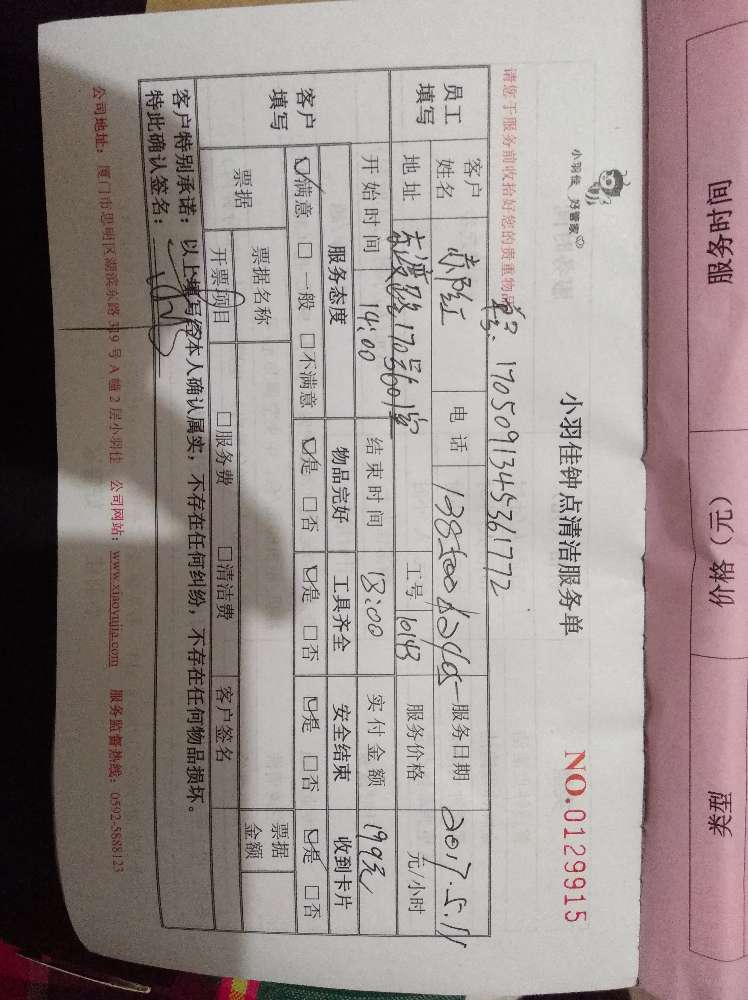 小羽佳 好管家
小羽佳钟点清洁服务单
NO.0129915
请您于服务前收拾好您的贵重物品
单号: 17050913453361772
员工填写
客户姓名
电话
服务日期 2017.5.11
地址 古渡路170号601室
工号 10143
服务价格 元/小时
开始时间 14:00 结束时间 18:00 实付金额 199元
客户填写
服务态度 物品完好 工具齐全 安全结束 收到卡片
☑满意 □一般 □不满意 ☑是 □否 ☑是 □否 ☑是 □否 ☑是 □否
票据 票据名称 票据金额
开票项目 □服务费 □清洁费 客户签名
客户特别承诺：以上填写经本人确认属实，不存在任何纠纷，不存在任何物品损坏。
特此确认签名：
公司地址：厦门市思明区湖滨东路319号A幢2层小羽佳 公司网站：www.xiaoyujia.com 服务监督热线：0592-5888123
服务时间
价格（元）
类型